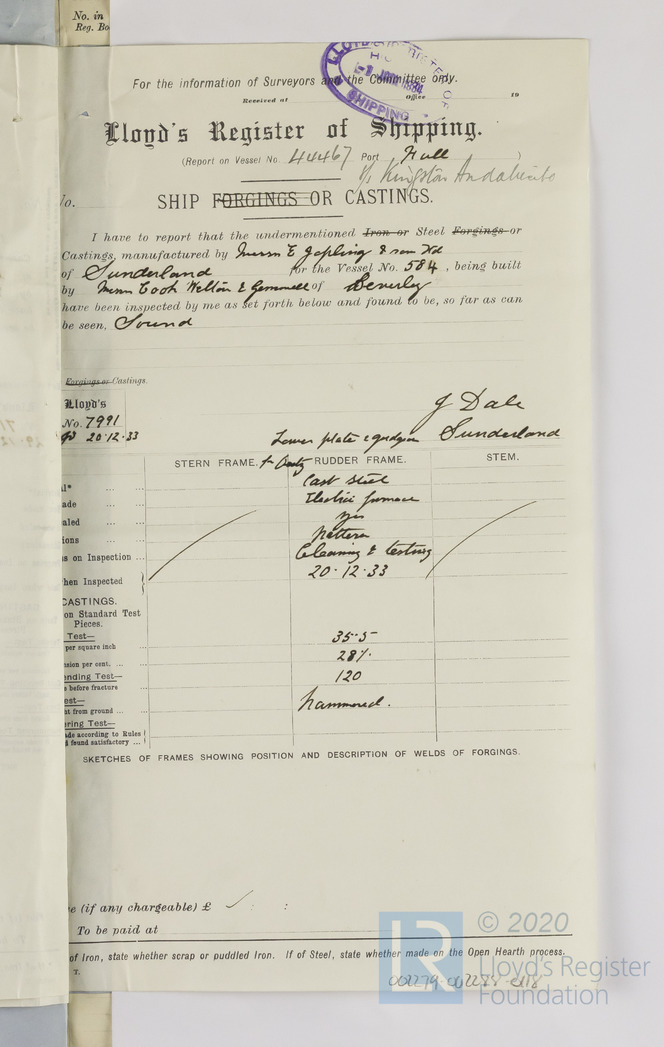 No. in
Reg. Bo
For the information of Surveyors and the Committee only.
LLOYD'S REGISTER OF
SHIPPING
Received at Office 19
Lloyd's Register of Shipping.
(Report on Vessel No. 44467 Port Hull )
s/s Kingston Andalusite
No.
SHIP FORGINGS OR CASTINGS.
I have to report that the undermentioned Iron or Steel Forgings or
Castings, manufactured by Messrs E Jopling & Son Ltd
of Sunderland for the Vessel No. 584, being built
by Messrs Cook Welton & Gemmell of Beverley
have been inspected by me as set forth below and found to be, so far as can
be seen, Sound
Forgings or Castings.
Lloyd's
No. 7991
JD 20.12.33
J Dale
Sunderland
Lower plate & gudgeon
STERN FRAME. for Aerty RUDDER FRAME. STEM.
al* ... ... Cast Steel
ade ... ... Electric furnace
aled ... ... Yes
ions ... ... Pattern
s on Inspection ... Cleaning & testing
hen Inspected 20.12.33
CASTINGS.
on Standard Test
Pieces.
Test— 35.5
per square inch ...
nsion per cent. ... ... 28%
ending Test— 120
e before fracture ...
est— hammered.
ht from ground ... ...
ring Test—
ade according to Rules
& found satisfactory ...
SKETCHES OF FRAMES SHOWING POSITION AND DESCRIPTION OF WELDS OF FORGINGS.
e (if any chargeable) £ : :
To be paid at
of Iron, state whether scrap or puddled Iron. If of Steel, state whether made on the Open Hearth process.
T.
002279-002288-0118
LR © 2020
Lloyd's Register
Foundation